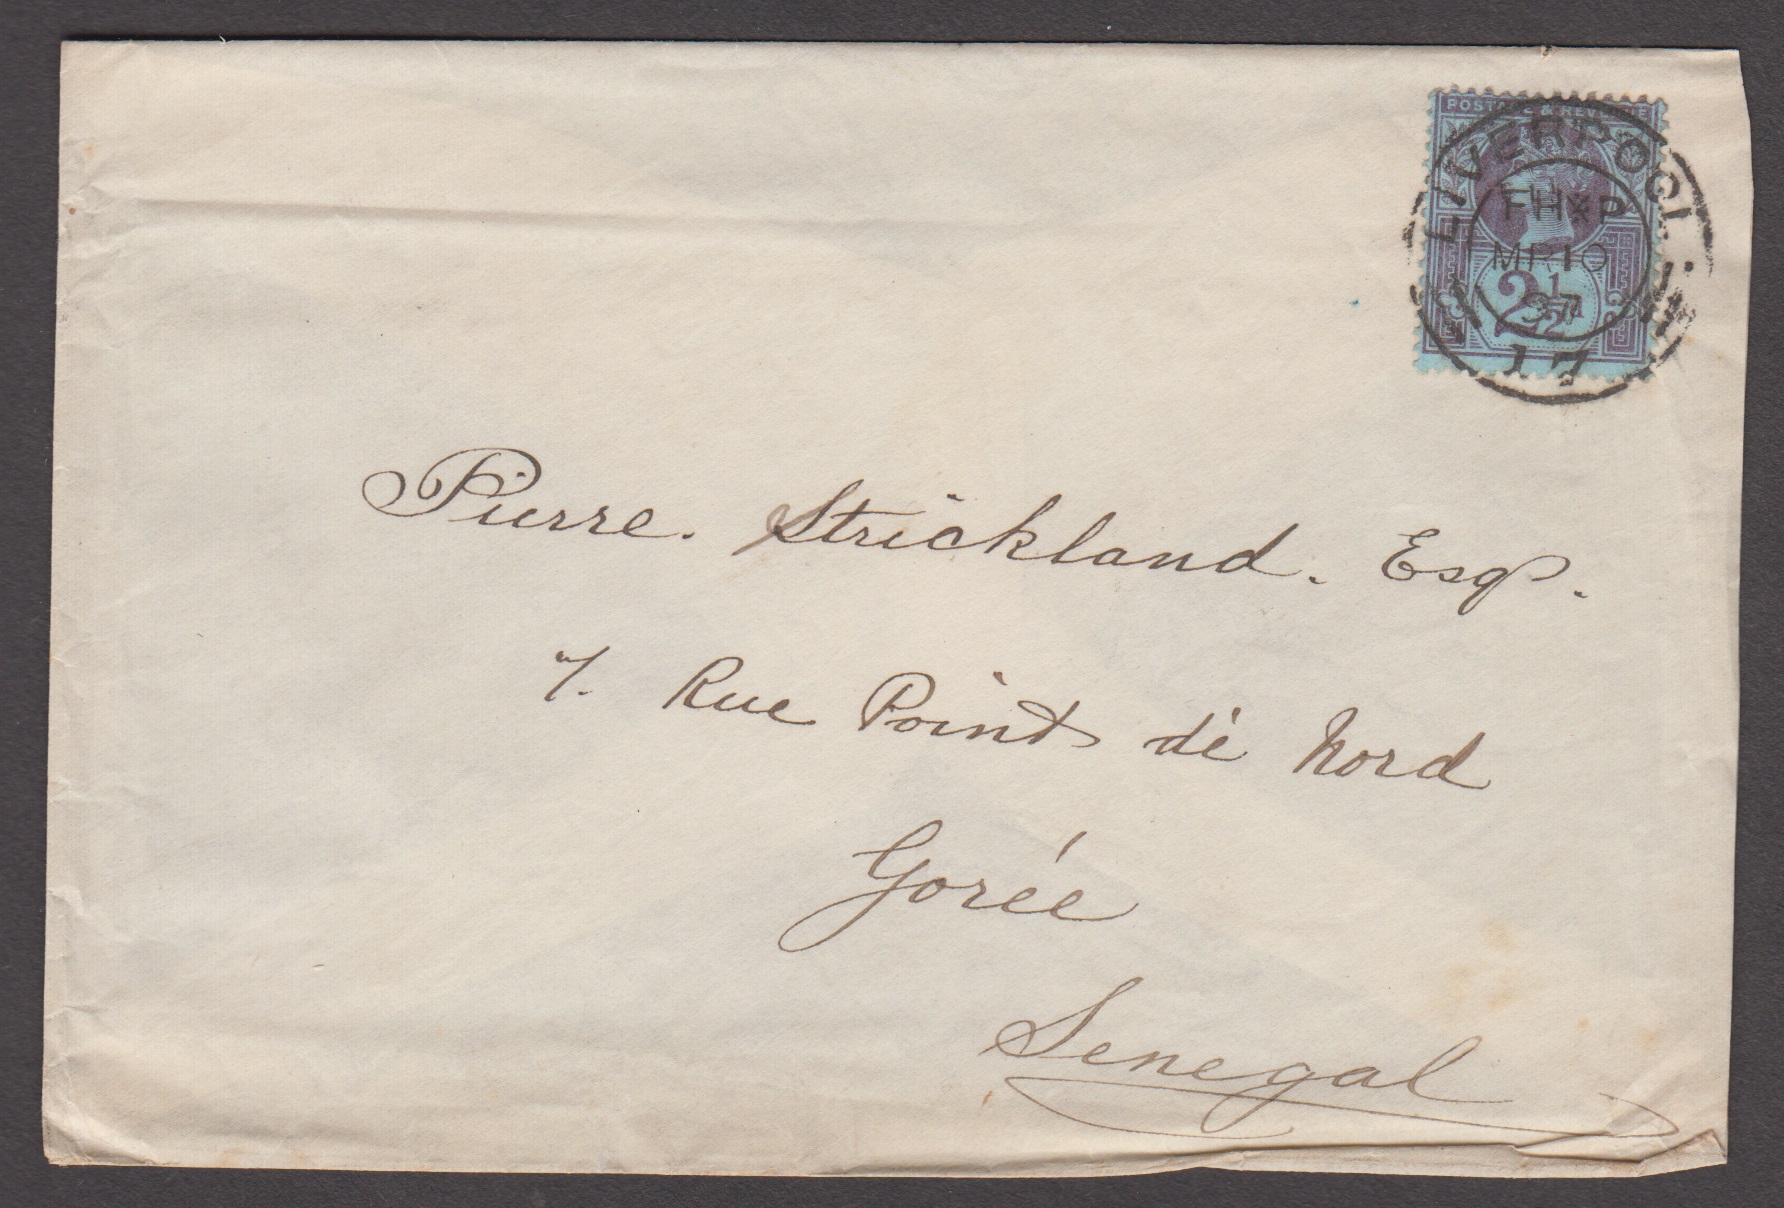 POSTAGE & REVENUE
LIVERPOOL
FHXP
MR10
97
2½
17
Pierre. Strickland. Esq.
7. Rue Point dé Nord
Gorée
Senegal